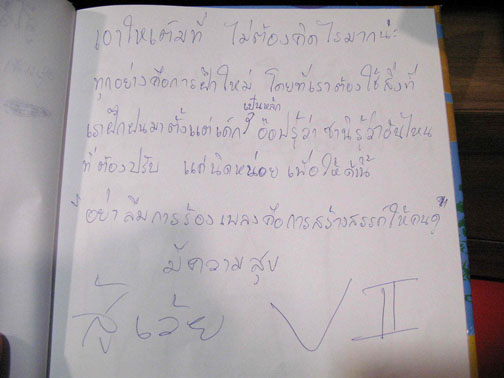 เอาให้เต็มที่ ไม่ต้องคิดไรมากน่ะ
ทุกอย่างคือการฝึกใหม่ โดยที่เราต้องใช้สิ่งที่
เป็นหลัก
เราฝึกฝนมาตั้งแต่เด็กๆ รู้ว่า ชานิรู้ว่าอันไหน
ที่ต้องปรับ แต่นิดหน่อย เพื่อให้
อย่าลืมการร้องเพลงคือการสร้างสรรค์ให้คนดู
มีความสุข
สู้เว้ย VII